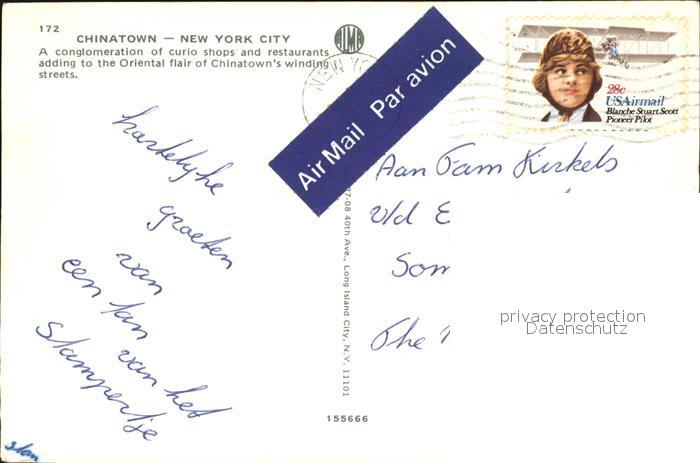 172
CHINATOWN — NEW YORK CITY
A conglomeration of curio shops and restaurants
adding to the Oriental flair of Chinatown's winding
streets.
NEW YO
Air Mail Par avion
28c
USAirmail
Blanche Stuart Scott
Pioneer Pilot
hartelijke
groeten
van
een fan van het
Stampertje
Aan Fam Kirkels
v/d E
Som
The
37-08 40th Ave., Long Island City, N.Y. 11101
155666
privacy protection
Datenschutz